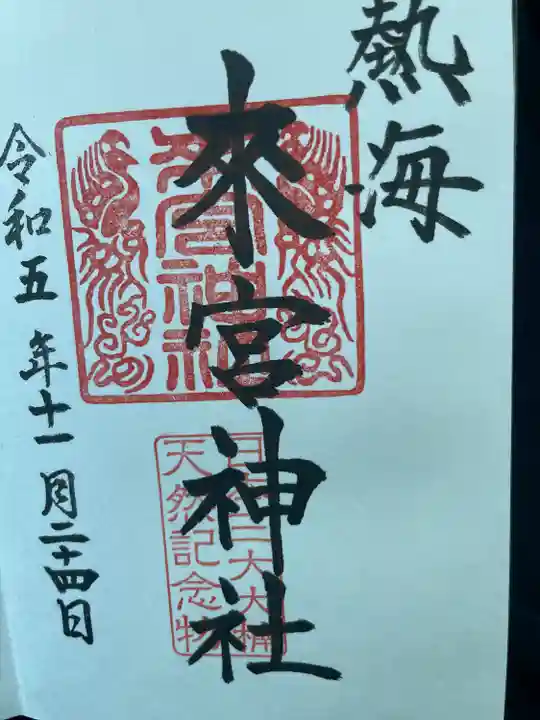 熱海
來宮神社
來宮神社
天然記念物
令和五年十一月二十四日